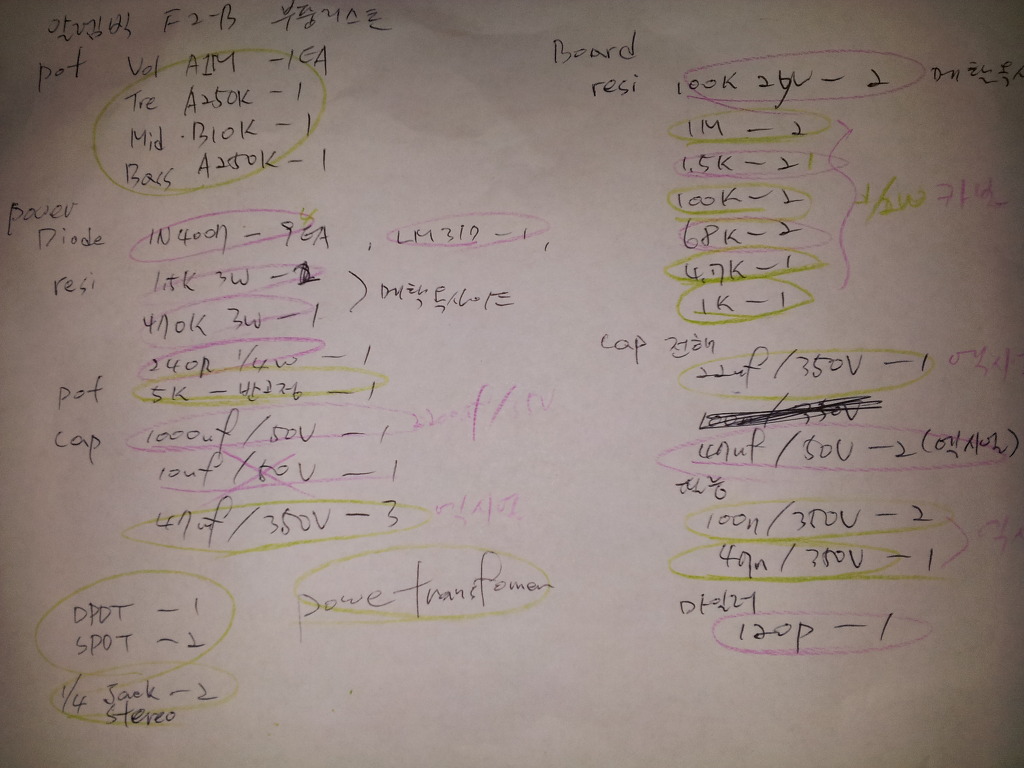 알렘빅 F2-B 부품리스트
pot Vol A1M - 1EA
Tre A250K - 1
Mid B10K - 1
Bass A250K - 1
power
Diode 1N4007 - 9EA, LM317 - 1,
resi 1.5K 3W -
470K 3W - 1
메탈옥사이드
240Ω 1/4W - 1
pot 5K - 반고정 - 1
cap 1000uf/50V - 1
10uf/50V - 1
47uf/350V - 3 엑시얼
DPDT - 1
SPDT - 2
1/4 Jack - 2
stereo
powe transfomer
Board
resi 100K 2W - 2
1M - 2
1.5K - 2
100K - 2
68K - 2
4.7K - 1
1K - 1
1/2W 카본
cap 전해
22uf/350V - 1
47uf/50V - 2 (엑시얼)
필름
100n/350V - 2
47n/350V - 1
마일러
120p - 1